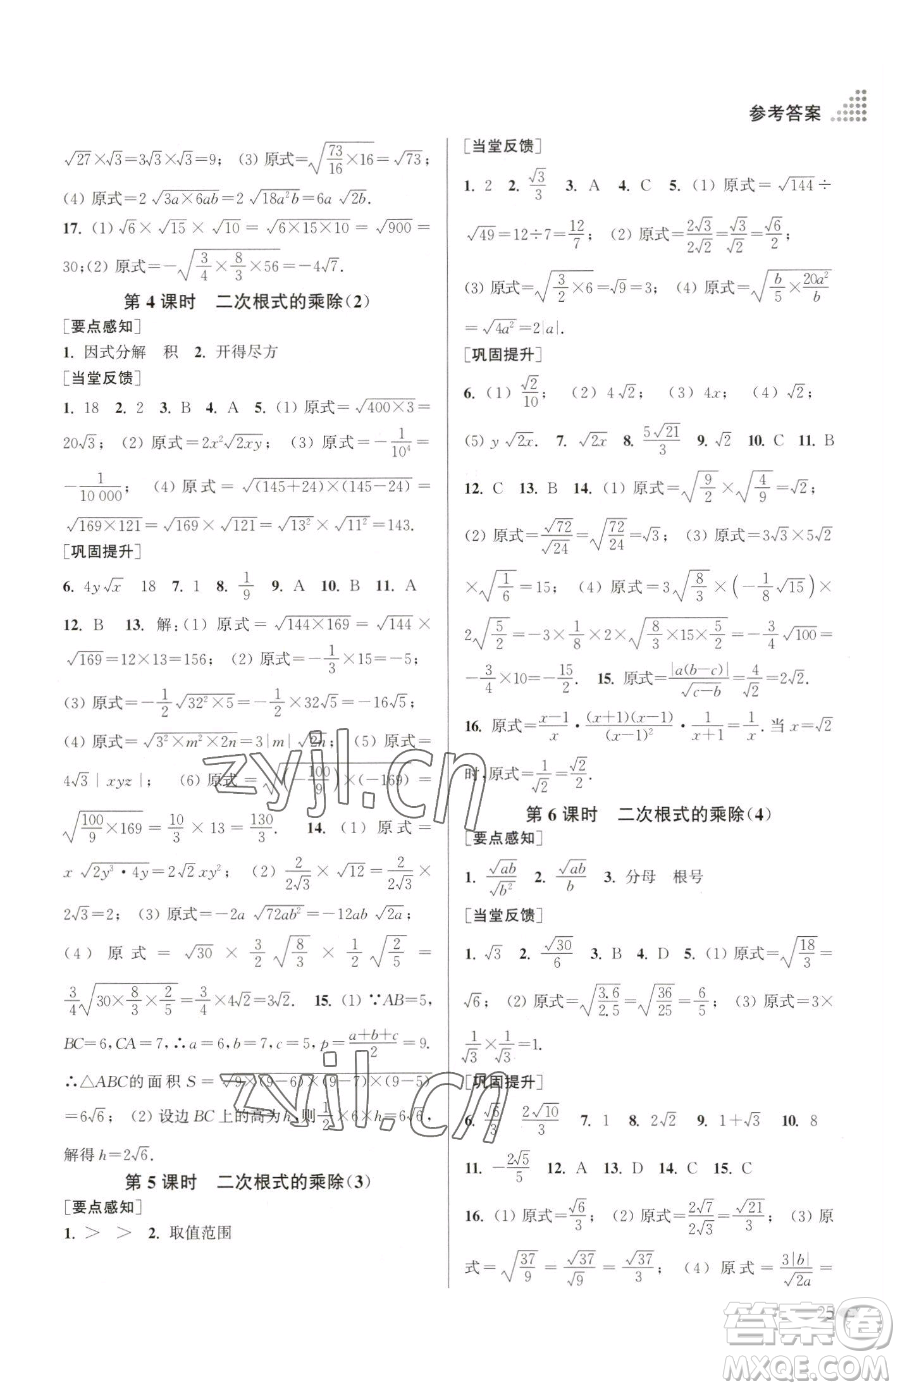 参考答案
√27×√3=3√3×√3=9; (3) 原式=√(73/16×16)=√73;
(4) 原式=2√(3a×6ab)=2√(18a²b)=6a√(2b).
17. (1) √6×√15×√10=√(6×15×10)=√900=
30;(2) 原式=-√(3/4×8/3×56)=-4√7.
第 4 课时 二次根式的乘除(2)
[要点感知]
1. 因式分解 积 2. 开得尽方
[当堂反馈]
1. 18 2. 2 3. B 4. A 5. (1) 原式=√(400×3)=
20√3; (2) 原式=2x²√(2xy); (3) 原式=-1/10⁴=
-1/10 000; (4) 原式=√((145+24)×(145-24))=
√(169×121)=√169×√121=√13²×√11²=143.
[巩固提升]
6. 4y√x 18 7. 1 8. 1/9 9. A 10. B 11. A
12. B 13. 解:(1) 原式=√(144×169)=√144×
√169=12×13=156; (2) 原式=-1/3×15=-5;
(3) 原式=-1/2√(32²×5)=-1/2×32√5=-16√5;
(4) 原式=√(3²×m²×2n)=3|m|√(2n); (5) 原式=
4√3|xyz|; (6) 原式=√((-100/9)×(-169))=
√(100/9×169)=10/3×13=130/3. 14. (1) 原式=
x√(2y³·4y)=2√2xy²; (2) 原式=2/(2√3)×√12=2/(2√3)×
2√3=2; (3) 原式=-2a√(72ab²)=-12ab√(2a);
(4) 原式=√30×3/2√(8/3)×1/2√(2/5)=
3/4√(30×8/3×2/5)=3/4×4√2=3√2. 15. (1) ∵AB=5,
BC=6,CA=7,∴a=6,b=7,c=5,p=(a+b+c)/2=9.
∴△ABC的面积 S=√(9×(9-6)×(9-7)×(9-5))
=6√6; (2) 设边BC上的高为h,则1/2×6×h=6√6,
解得h=2√6.
第 5 课时 二次根式的乘除(3)
[要点感知]
1. > > 2. 取值范围
[当堂反馈]
1. 2 2. √3/3 3. A 4. C 5. (1) 原式=√144÷
√49=12÷7=12/7; (2) 原式=2√3/2√2=√3/√2=√6/2;
(3) 原式=√(3/2×6)=√9=3; (4) 原式=√(b/5×20a²/b)
=√(4a²)=2|a|.
[巩固提升]
6. (1) √2/10; (2) 4√2; (3) 4x; (4) √2;
(5) y√(2x). 7. √(2x) 8. 5√21/3 9. √2 10. C 11. B
12. C 13. B 14. (1) 原式=√(9/2)×√(4/9)=√2;
(2) 原式=√72/√24=√(72/24)=√3; (3) 原式=3√3×5√2
×√(1/6)=15; (4) 原式=3√(8/3)×(-1/8√15)×
2√(5/2)=-3×1/8×2×√(8/3×15×5/2)=-3/4√100=
-3/4×10=-15/2. 15. 原式=|a(b-c)|/√(c-b)=4/√2=2√2.
16. 原式=(x-1)/x·(x+1)(x-1)/(x-1)²·1/(x+1)=1/x.当x=√2
时,原式=1/√2=√2/2.
第 6 课时 二次根式的乘除(4)
[要点感知]
1. √(ab)/√(b²) 2. √(ab)/b 3. 分母 根号
[当堂反馈]
1. √3 2. √30/6 3. B 4. D 5. (1) 原式=√(18/3)=
√6; (2) 原式=√(3.6/2.5)=√(36/25)=6/5; (3) 原式=3×
1/√3×1/√3=1.
[巩固提升]
6. √6/3 2√10/3 7. 1 8. 2√2 9. 1+√3 10. 8
11. -2√5/5 12. C 13. C 14. A 15. D
16. (1) 原式=√6/3; (2) 原式=2√7/2√3=√21/3; (3) 原
式=√(37/9)=√37/√9=√37/3; (4) 原式=3|b|/√(2a)=
25
zyjl.cn
zyjl.cn
答案圈
MXQE.COM